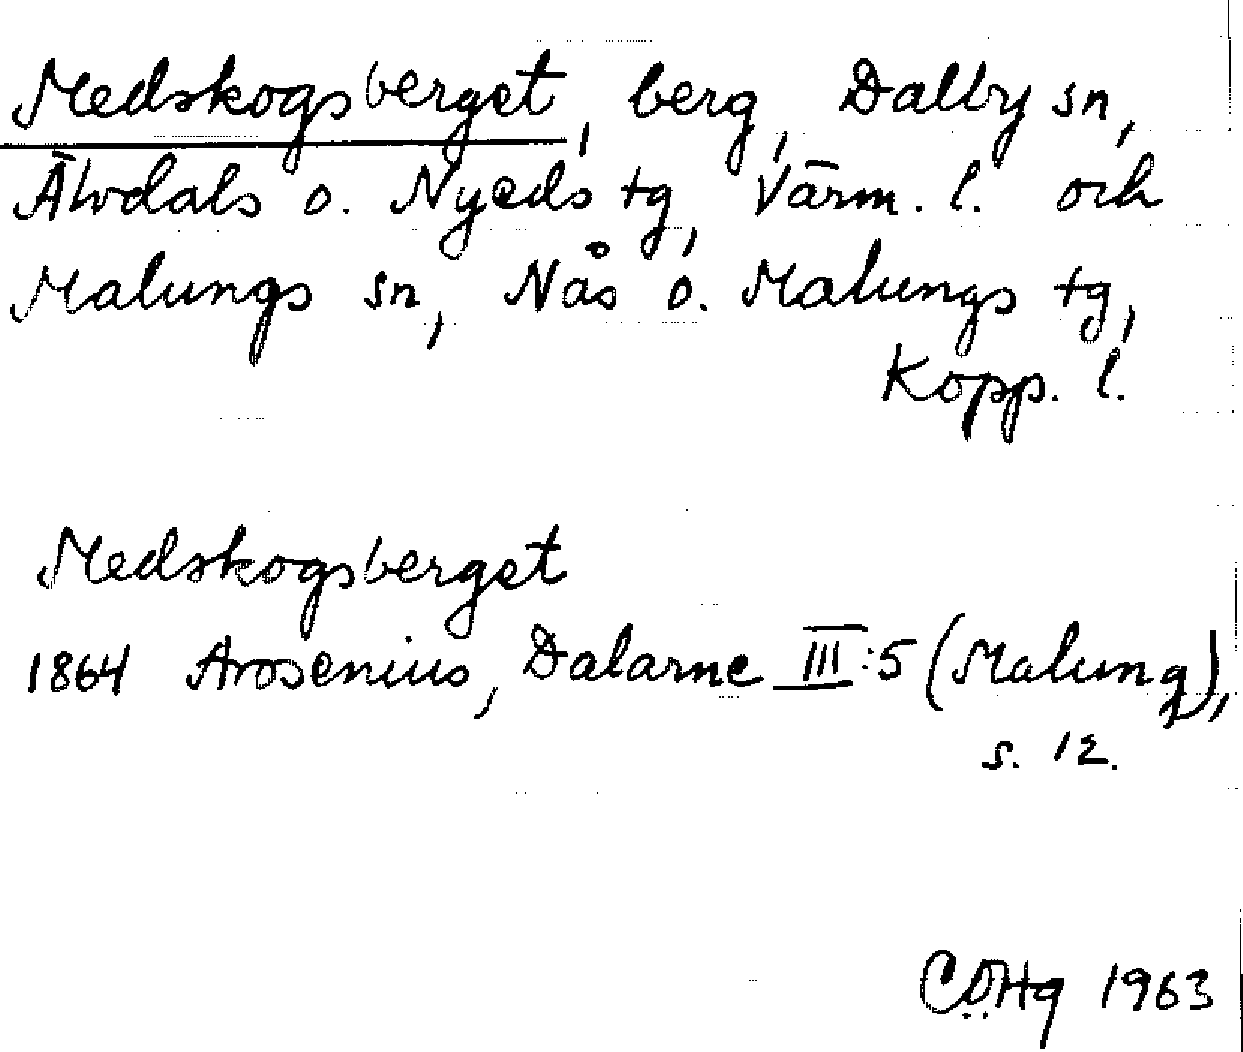 Medskogsberget, berg, Dalby sn,
Älvdals o. Nyeds tg, Värm. l. och
Malungs sn, Nås o. Malungs tg,
Kopp. l.
Medskogsberget
1864 Arosenius, Dalarne III:5 (Malung),
s. 12.
CÖHg 1963